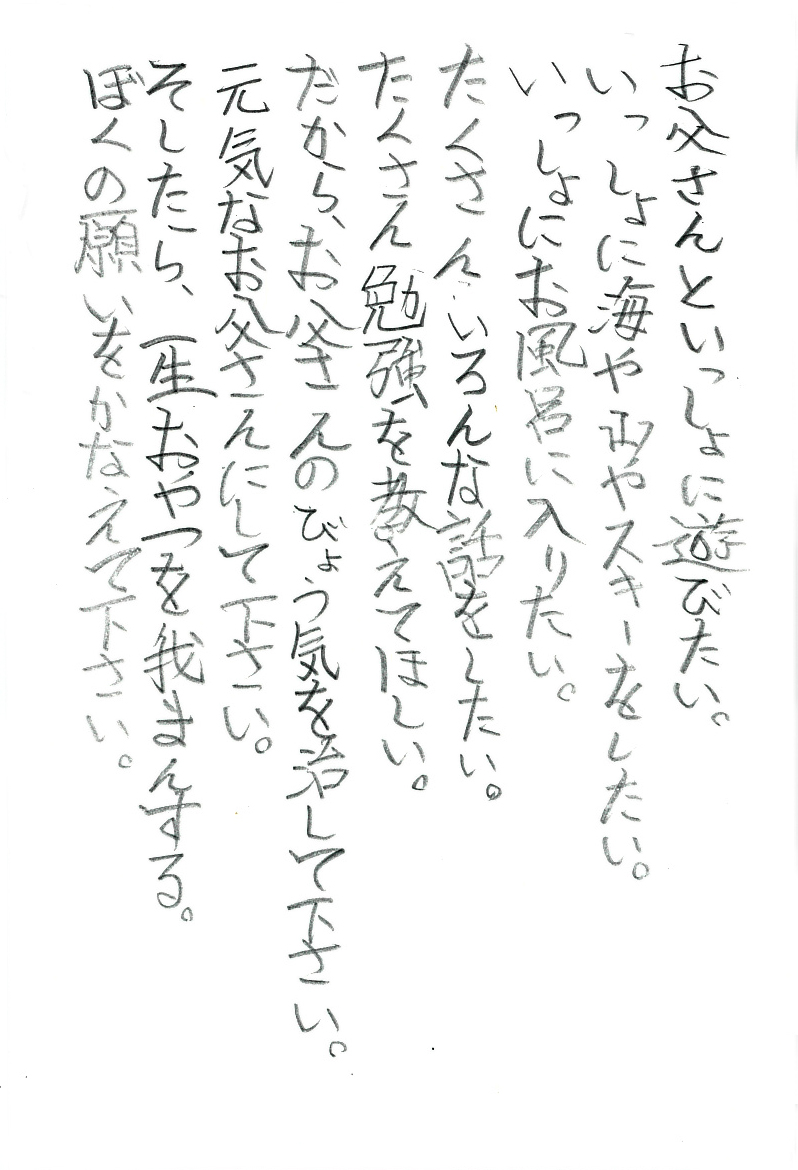 お父さんといっしょに遊びたい。
いっしょに海や山やスキーをしたい。
いっしょにお風呂に入りたい。
たくさんいろんな話をしたい。
たくさん勉強を教えてほしい。
だから、お父さんのびょう気を治して下さい。
元気なお父さんにして下さい。
そしたら、一生おやつを我まんする。
ぼくの願いをかなえて下さい。